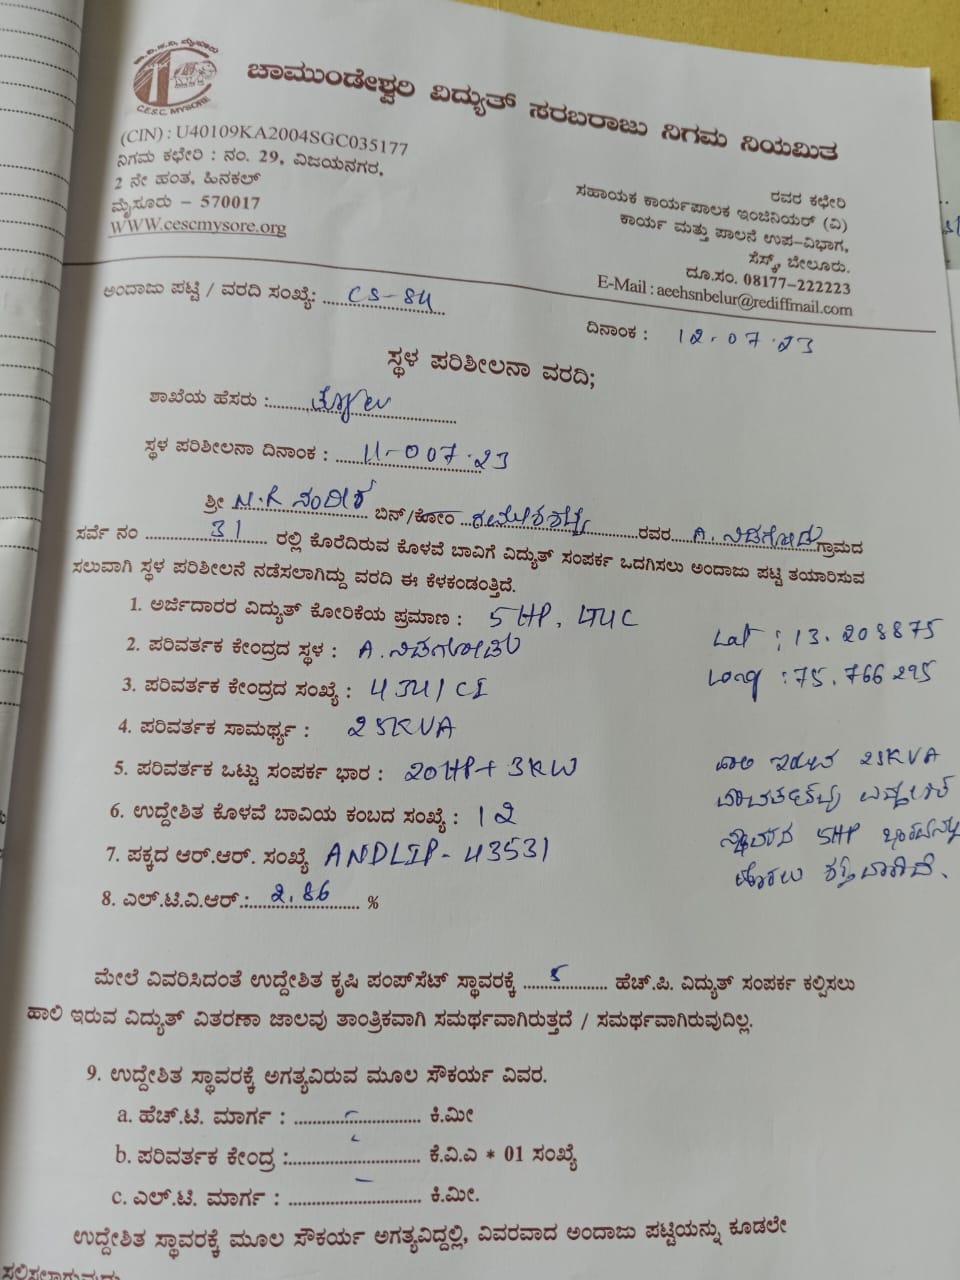 ಚಾ.ವಿ.ಸ.ನಿ. ಮೈಸೂರು
C.E.S.C. MYSORE
ಚಾಮುಂಡೇಶ್ವರಿ ವಿದ್ಯುತ್ ಸರಬರಾಜು ನಿಗಮ ನಿಯಮಿತ
(CIN) : U40109KA2004SGC035177
ನಿಗಮ ಕಛೇರಿ : ನಂ. 29, ವಿಜಯನಗರ,
2 ನೇ ಹಂತ, ಹಿನಕಲ್
ಮೈಸೂರು – 570017
WWW.cescmysore.org
ರವರ ಕಛೇರಿ
ಸಹಾಯಕ ಕಾರ್ಯಪಾಲಕ ಇಂಜಿನಿಯರ್ (ವಿ)
ಕಾರ್ಯ ಮತ್ತು ಪಾಲನೆ ಉಪ–ವಿಭಾಗ,
ಸೆಸ್ಕ್, ಬೇಲೂರು.
ದೂ.ಸಂ. 08177–222223
E-Mail : aeehsnbelur@rediffmail.com
ಅಂದಾಜು ಪಟ್ಟಿ / ವರದಿ ಸಂಖ್ಯೆ: CS-84
ದಿನಾಂಕ : 12.07.23
ಸ್ಥಳ ಪರಿಶೀಲನಾ ವರದಿ;
ಶಾಖೆಯ ಹೆಸರು :
ಸ್ಥಳ ಪರಿಶೀಲನಾ ದಿನಾಂಕ : 11-007.23
ಶ್ರೀ M.R ನಂದೀಶ ಬಿನ್/ಕೋಂ ರವರ A. ನಿಡಗೋಡು ಗ್ರಾಮದ
ಸರ್ವೆ ನಂ 31 ರಲ್ಲಿ ಕೊರೆದಿರುವ ಕೊಳವೆ ಬಾವಿಗೆ ವಿದ್ಯುತ್ ಸಂಪರ್ಕ ಒದಗಿಸಲು ಅಂದಾಜು ಪಟ್ಟಿ ತಯಾರಿಸುವ
ಸಲುವಾಗಿ ಸ್ಥಳ ಪರಿಶೀಲನೆ ನಡೆಸಲಾಗಿದ್ದು ವರದಿ ಈ ಕೆಳಕಂಡಂತ್ತಿದೆ.
1. ಅರ್ಜಿದಾರರ ವಿದ್ಯುತ್ ಕೋರಿಕೆಯ ಪ್ರಮಾಣ : 5 HP,
Lat : 13.208875
2. ಪರಿವರ್ತಕ ಕೇಂದ್ರದ ಸ್ಥಳ : A. ನಿಡಗೋಡು
Long : 75.766295
3. ಪರಿವರ್ತಕ ಕೇಂದ್ರದ ಸಂಖ್ಯೆ :
4. ಪರಿವರ್ತಕ ಸಾಮರ್ಥ್ಯ : 25KVA
5. ಪರಿವರ್ತಕ ಒಟ್ಟು ಸಂಪರ್ಕ ಭಾರ : 20HP+ 3KW
6. ಉದ್ದೇಶಿತ ಕೊಳವೆ ಬಾವಿಯ ಕಂಬದ ಸಂಖ್ಯೆ : 12
7. ಪಕ್ಕದ ಆರ್.ಆರ್. ಸಂಖ್ಯೆ ANDLIP-43531
8. ಎಲ್.ಟಿ.ವಿ.ಆರ್.: 2.86 %
ಹಾಲಿ ಇರುವ 25KVA
5HP
ಮೇಲೆ ವಿವರಿಸಿದಂತೆ ಉದ್ದೇಶಿತ ಕೃಷಿ ಪಂಪ್‌ಸೆಟ್ ಸ್ಥಾವರಕ್ಕೆ 5 ಹೆಚ್.ಪಿ. ವಿದ್ಯುತ್ ಸಂಪರ್ಕ ಕಲ್ಪಿಸಲು
ಹಾಲಿ ಇರುವ ವಿದ್ಯುತ್ ವಿತರಣಾ ಜಾಲವು ತಾಂತ್ರಿಕವಾಗಿ ಸಮರ್ಥವಾಗಿರುತ್ತದೆ / ಸಮರ್ಥವಾಗಿರುವುದಿಲ್ಲ.
9. ಉದ್ದೇಶಿತ ಸ್ಥಾವರಕ್ಕೆ ಅಗತ್ಯವಿರುವ ಮೂಲ ಸೌಕರ್ಯ ವಿವರ.
a. ಹೆಚ್.ಟಿ. ಮಾರ್ಗ : ಕಿ.ಮೀ
b. ಪರಿವರ್ತಕ ಕೇಂದ್ರ : ಕೆ.ವಿ.ಎ * 01 ಸಂಖ್ಯೆ
c. ಎಲ್.ಟಿ. ಮಾರ್ಗ : ಕಿ.ಮೀ.
ಉದ್ದೇಶಿತ ಸ್ಥಾವರಕ್ಕೆ ಮೂಲ ಸೌಕರ್ಯ ಅಗತ್ಯವಿದ್ದಲ್ಲಿ, ವಿವರವಾದ ಅಂದಾಜು ಪಟ್ಟಿಯನ್ನು ಕೂಡಲೇ